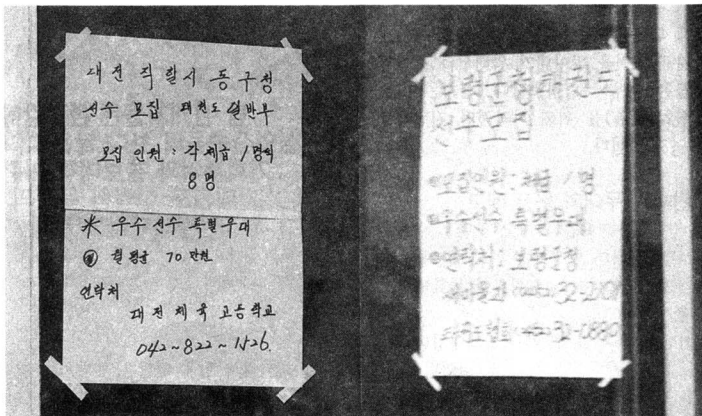 대전 직할시 동구청
선수 모집 태권도 일반부
모집 인원 : 각 체급 1명씩
8명
米 우수 선수 특별 우대
월 평균 70 만원
연락처
대전 체육 고등학교
042~822~1526.
보령군청 태권도
선수모집
모집인원 : 체급 1명
우수선수 특별우대
연락처 : 보령군청
새마을과
태권도협회